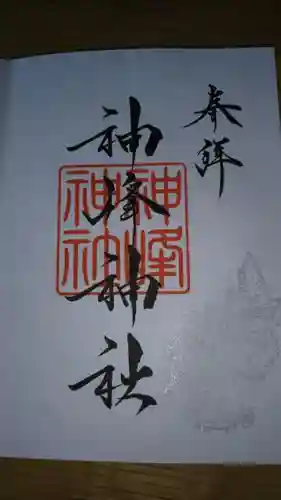 奉拝
神峰神社
神峰
神社